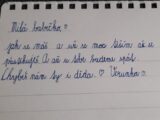 Milá babičko ♡
jak se máš a už se moc těším až u
přespíš A až u tebe budem spát.
Chybíš nám ty i děda. ♡ Verunka ♡